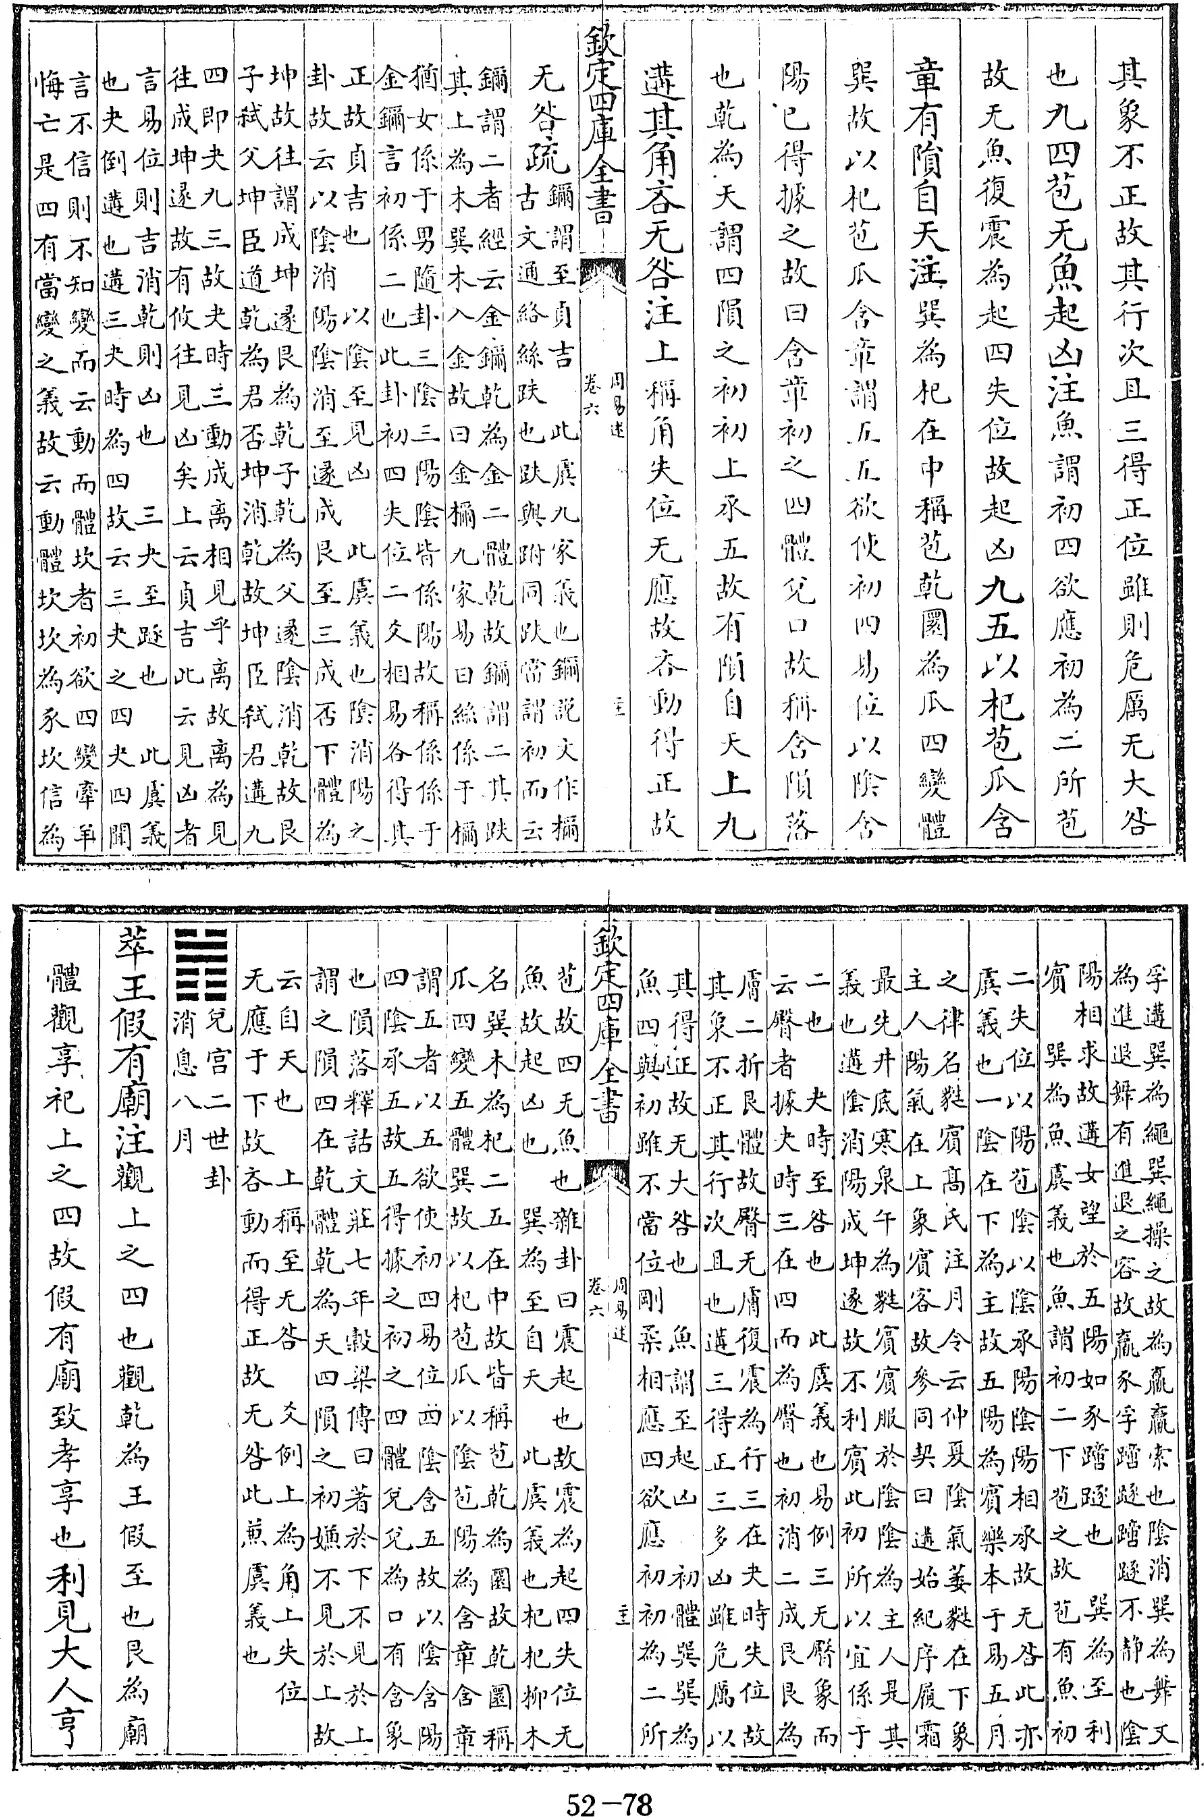 其象不正故其行次且三得正位雖則危厲无大咎
也九四苞无魚起凶注魚謂初四欲應初為二所苞
故无魚復震為起四失位故起凶九五以杞苞瓜含
章有隕自天注巽為杞在中稱苞乾圜為瓜四變體
巽故以杞苞瓜含章謂五五欲使初四易位以陰含
陽已得據之故曰含章初之四體兌口故稱含隕落
也乾為天謂四隕之初初上承五故有隕自天上九
遘其角吝无咎注上稱角失位无應故吝動得正故
欽定四庫全書 周易述 卷六
无咎疏鑈謂至貞吉 此虞九家義也鑈説文作檷
古文通絡絲趺也趺與跗同趺當謂初而云
鑈謂二者經云金鑈乾為金二體乾故鑈謂二其趺
其上為木巽木入金故曰金檷九家易曰絲係于檷
猶女係于男隨卦三陰三陽陰皆係陽故稱係係于
金鑈言初係二也此卦初四失位二爻相易各得其
正故貞吉也 以陰至見凶 此虞義也陰消陽之
卦故云以陰消陽陰消至遂成艮至三成否下體為
坤故往謂成坤遂艮為乾子乾為父遂陰消乾故艮
子弑父坤臣道乾為君否坤消乾故坤臣弑君遘九
四即夬九三故夬時三動成離相見乎離故離為見
往成坤遂故有攸往見凶矣上云貞吉此云見凶者
言易位則吉消乾則凶也 三夬至䠱也 此虞義
也夬倒遘也遘三夬時為四故云三夬之四夬四聞
言不信則不知變而云動而體坎者初欲四變牽羊
悔亡是四有當變之義故云動體坎坎為豕坎信為
孚遘巽為繩巽繩操之故為羸羸索也陰消巽為舞又
為進退舞有進退之容故羸豕孚蹢䠱蹢䠱不静也陰
陽相求故遘女望於五陽如豕蹢䠱也 巽為至利
賓 巽為魚虞義也魚謂初二下苞之故苞有魚初
二失位以陽苞陰以陰承陽陰陽相承故无咎此亦
虞義也一陰在下為主故五陽為賓樂本于易五月
之律名蕤賓髙氏注月令云仲夏陰氣萎蕤在下象
主人陽氣在上象賓客故參同契曰遘始紀序履霜
最先井底寒泉午為蕤賓賓服於陰陰為主人是其
義也遘陰消陽成坤遂故不利賓此初所以宜係于
二也 夬時至咎也 此虞義也易例三无臀象而
云臀者據夬時三在四而為臀也初消二成艮艮為
膚二折艮體故臀无膚復震為行三在夬時失位故
其象不正其行次且也遘三得正三多凶雖危厲以
其得正故无大咎也 魚謂至起凶 初體巽巽為
魚四與初雖不當位剛柔相應四欲應初初為二所
苞故四无魚也雜卦曰震起也故震為起四失位无
魚故起凶也 巽為至自天 此虞義也杞杞柳木
名巽木為杞二五在中故皆稱苞乾為圜故乾圜稱
瓜四變五體巽故以杞苞瓜以陰苞陽為含章含章
謂五者以五欲使初四易位四陰含五故以陰含陽
四陰承五故五得據之初之四體兌兌為口有含象
也隕落釋詁文莊七年榖梁傳曰著於下不見於上
謂之隕四在乾體乾為天四隕之初嫌不見於上故
云自天也 上稱至无咎 爻例上為角上失位
无應于下故吝動而得正故无咎此兼虞義也
欽定四庫全書 周易述 卷六
兌宮二世卦
消息八月
萃王假有廟注觀上之四也觀乾為王假至也艮為廟
體觀享祀上之四故假有廟致孝享也利見大人亨
52-78